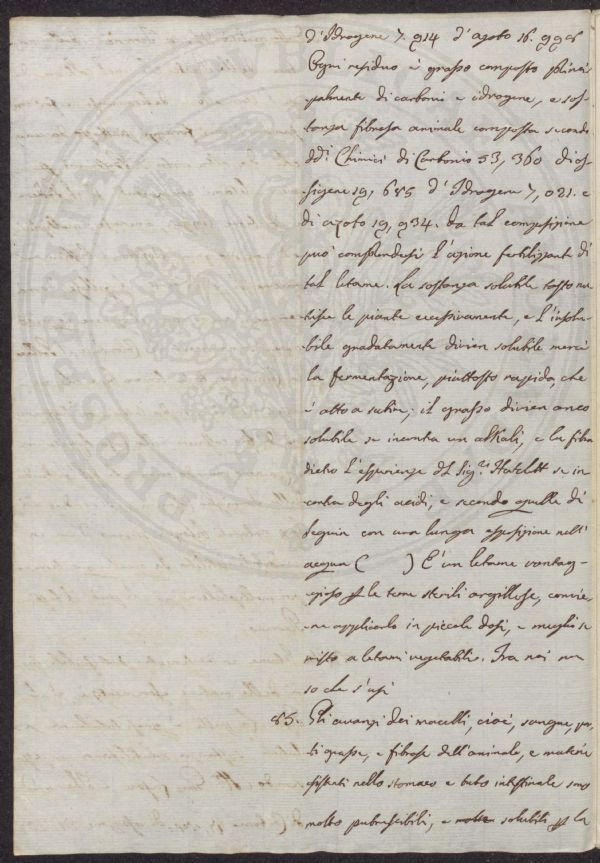 d'Idrogene 7. 914 d'azoto 16. 998
Ogni residuo è grasso composto princi
palmente di carbonio e idrogene, e sos=
tanza fibrosa animale composta secondo
ddi Chimici di Carbonio 53, 360 di os=
sigene 19, 685 d'Idrogene 7, 021. e
di azoto 19, 934. Da tal composizione
può comprendersi l'azione fertilizzante di
tal letame. La sostanza solubile tosto nu
trisce le piante eccessivamente, e l'insolu=
bile gradatamente divien solubile mercè
la fermentazione, piuttosto rapida, che
è atto a subire; il grasso divien anco
solubile se incontra un alkali, e la fibra
dietro l'esperienze del Sigr. Hatchett se in
contra degli acidi, e secondo quelle di
Seguin con una lunga esposizione nell'
acqua ( ) È un letame vantag=
gioso per le terre sterili argillose, convie=
ne applicarlo in piccole dosi, e meglio se
misto a letami vegetabili. Fra noi non
so che s'usi
85. Gli avanzi dei macelli, cioè, sangue, par
ti grasse, e fibrose dell'animale, e materie
esistenti nello stomaco e tubo intestinale sono
molto putrescibili, e solubili per la